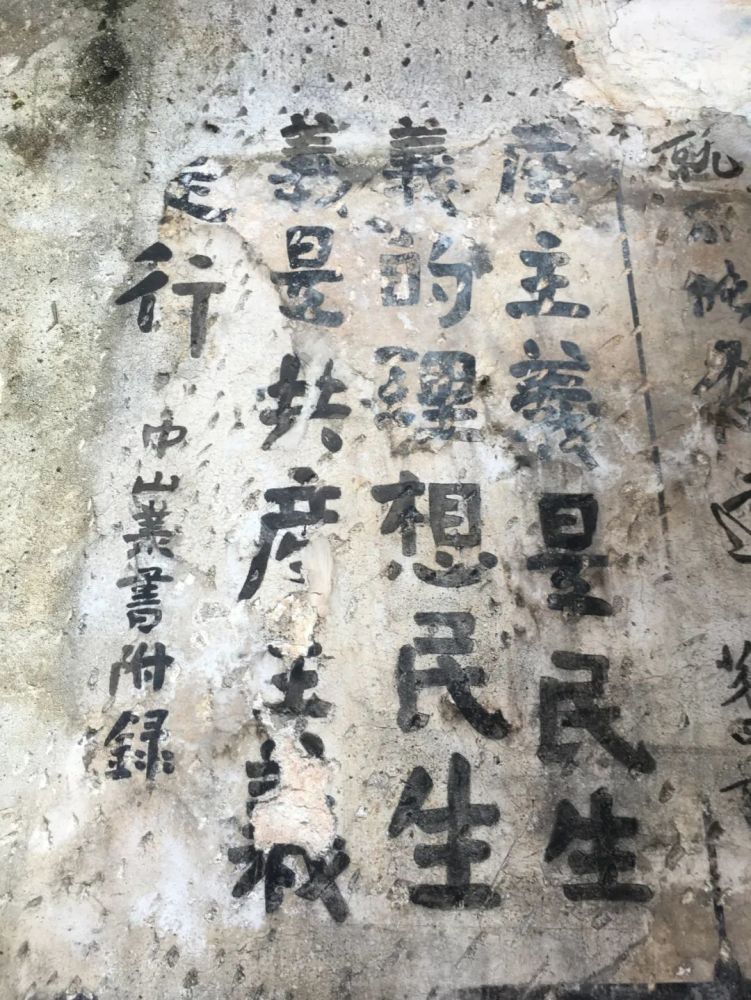 就不
產主義是民生
義的理想民生
義是共產主義
行
中山叢書附録